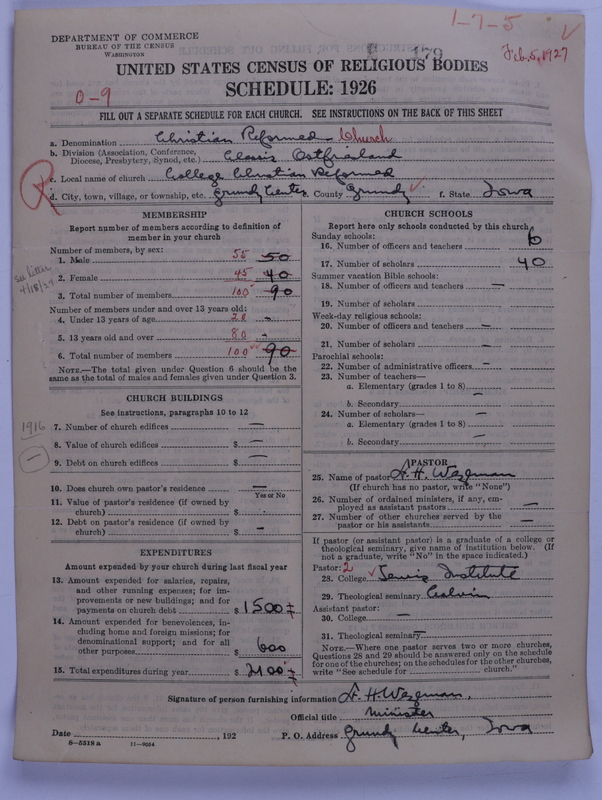 1-7-5
DEPARTMENT OF COMMERCE
BUREAU OF THE CENSUS
WASHINGTON
179
Feb. 5, 1927
UNITED STATES CENSUS OF RELIGIOUS BODIES
SCHEDULE: 1926
0-9
FILL OUT A SEPARATE SCHEDULE FOR EACH CHURCH. SEE INSTRUCTIONS ON THE BACK OF THIS SHEET
a. Denomination Christian Reformed Church
b. Division (Association, Conference, Diocese, Presbytery, Synod, etc.) Classis Ostfriesland
c. Local name of church College Christian Reformed
d. City, town, village, or township, etc. Grundy Center e. County Grundy f. State Iowa
MEMBERSHIP
Report number of members according to definition of
member in your church
Number of members, by sex:
1. Male 55 50
2. Female 45 40
3. Total number of members 100 90
See letter 4/18/27
Number of members under and over 13 years old:
4. Under 13 years of age 20 -
5. 13 years old and over 80 -
6. Total number of members 100 90
NOTE.—The total given under Question 6 should be the
same as the total of males and females given under Question 3.
CHURCH BUILDINGS
See instructions, paragraphs 10 to 12
1916
7. Number of church edifices —
8. Value of church edifices $ —
9. Debt on church edifices $ —
10. Does church own pastor's residence —
Yes or No
11. Value of pastor's residence (if owned by
church) $ .
12. Debt on pastor's residence (if owned by
church) $ -
EXPENDITURES
Amount expended by your church during last fiscal year
13. Amount expended for salaries, repairs,
and other running expenses; for im-
provements or new buildings; and for
payments on church debt $ 1500
14. Amount expended for benevolences, in-
cluding home and foreign missions; for
denominational support; and for all
other purposes $ 600
15. Total expenditures during year $ 2100
CHURCH SCHOOLS
Report here only schools conducted by this church
Sunday schools:
16. Number of officers and teachers 6
17. Number of scholars 40
Summer vacation Bible schools:
18. Number of officers and teachers —
19. Number of scholars
Week-day religious schools:
20. Number of officers and teachers —
21. Number of scholars —
Parochial schools:
22. Number of administrative officers —
23. Number of teachers—
a. Elementary (grades 1 to 8)
b. Secondary —
24. Number of scholars—
a. Elementary (grades 1 to 8) —
b. Secondary —
PASTOR
25. Name of pastor A. H. Wezeman
(If church has no pastor, write "None")
26. Number of ordained ministers, if any, em-
ployed as assistant pastors —
27. Number of other churches served by the
pastor or his assistants —
If pastor (or assistant pastor) is a graduate of a college or
theological seminary, give name of institution below. (If
not a graduate, write "No" in the space indicated.)
Pastor: 2
28. College Lewis Institute
29. Theological seminary Calvin
Assistant pastor:
30. College —
31. Theological seminary —
NOTE.—Where one pastor serves two or more churches,
Questions 28 and 29 should be answered only on the schedule
for one of the churches; on the schedules for the other churches,
write "See schedule for church."
Signature of person furnishing information A. H. Wezeman,
Official title Minister
Date , 192 P. O. Address Grundy Center, Iowa
6-5518 a 11-9034